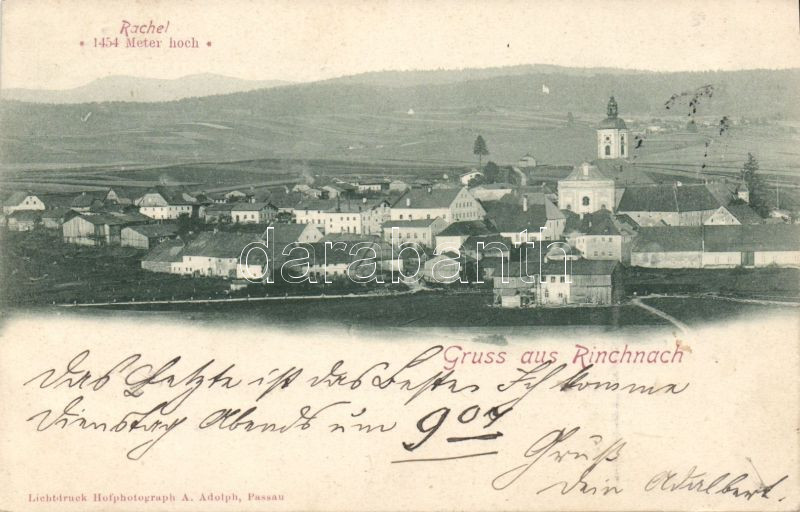 Rachel
* 1454 Meter hoch *
darabanth
Gruss aus Rinchnach
das Letzte ist das beste Ich komme
Dienstag Abends um 9.07
Gruß
dein Adalbert.
Lichtdruck Hofphotograph A. Adolph, Passau